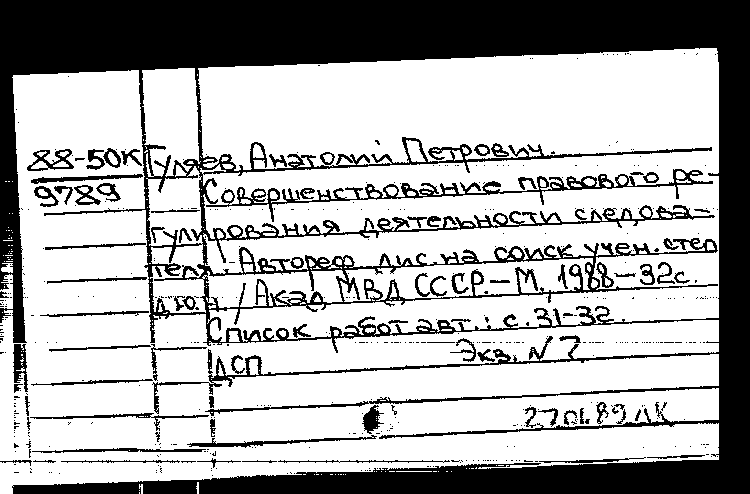 88-50К Гуляев, Анатолий Петрович.
9789 Совершенствование правового ре-
гулирования деятельности следова-
теля: Автореф. дис. на соиск. учен. степ
д.ю.н. / Акад. МВД СССР.- М., 1988.-32с.
Список работ авт.: с.31-32.
ДСП. Экз. N 7